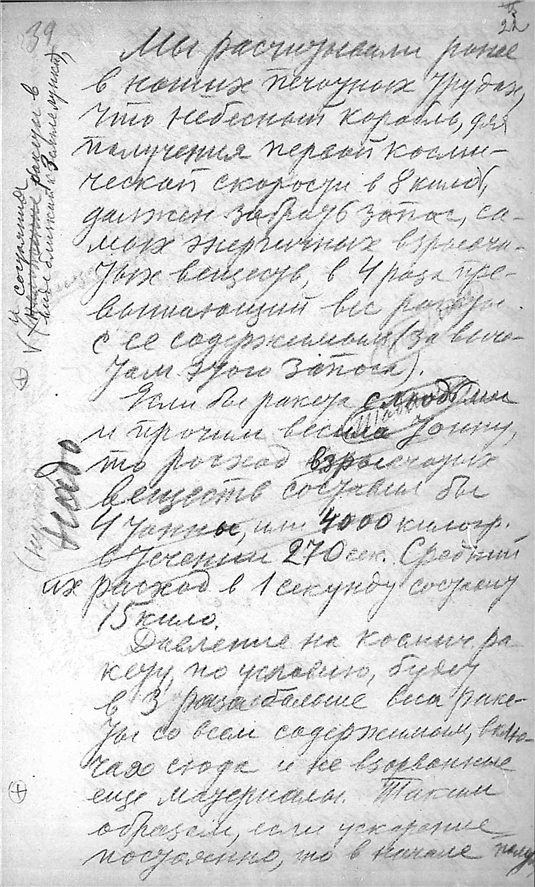 39
22
Мы расчитывали ранее
в наших печатных трудах,
что небесный корабль, для
получения первой косми-
ческой скорости в 8 кило,
должен забрать запас, са-
мых энергичных взрывча-
тых веществ, в 4 раза пре-
вышающий вес ракеты
с ее содержимым (за выче-
том этого запаса).
Если бы ракета с людьми
и прочим весила тонну,
то расход взрывчатых
веществ составил бы
4 тонны, или 4000 килогр.
в течении 270 сек. Средний
их расход в 1 секунду составит
15 кило.
Давление на космич. ра
кету, по условию, будет
в 3 раза больше веса раке-
ты со всем содержимым, вклю-
чая сюда и не взорванные
еще материалы. Таким
образом, если ускорение
постоянно, то в начале
и состояния
ракеты в
надо